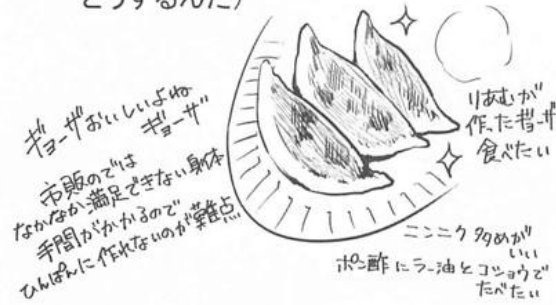 どうするんだ)
ギョーザおいしいよね
ギョーザ
市販のでは
なかなか満足できない身体
手間がかかるので
ひんぱんに作れないのが難点
りあむが
作ったギョーザ
食べたい
ニンニク多めが
いい
ポン酢にラー油とコショウで
たべたい